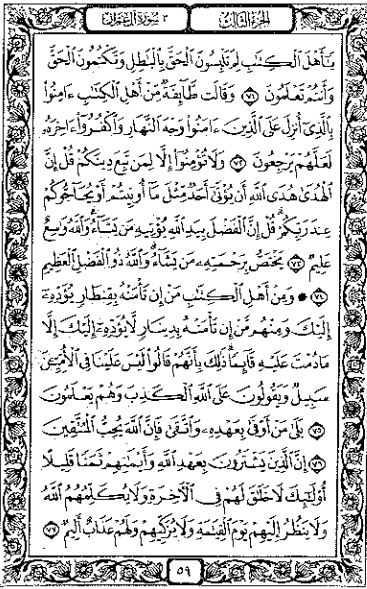 الجزء الثالث ٣ سورة آل عمران
يَٰٓأَهْلَ ٱلْكِتَٰبِ لِمَ تَلْبِسُونَ ٱلْحَقَّ بِٱلْبَٰطِلِ وَتَكْتُمُونَ ٱلْحَقَّ
وَأَنتُمْ تَعْلَمُونَ ٧١ وَقَالَت طَّآئِفَةٌ مِّنْ أَهْلِ ٱلْكِتَٰبِ ءَامِنُوا۟
بِٱلَّذِىٓ أُنزِلَ عَلَى ٱلَّذِينَ ءَامَنُوا۟ وَجْهَ ٱلنَّهَارِ وَٱكْفُرُوٓا۟ ءَاخِرَهُۥ
لَعَلَّهُمْ يَرْجِعُونَ ٧٢ وَلَا تُؤْمِنُوٓا۟ إِلَّا لِمَن تَبِعَ دِينَكُمْ قُلْ إِنَّ
ٱلْهُدَىٰ هُدَى ٱللَّهِ أَن يُؤْتَىٰٓ أَحَدٌ مِّثْلَ مَآ أُوتِيتُمْ أَوْ يُحَآجُّوكُمْ
عِندَ رَبِّكُمْ ۗ قُلْ إِنَّ ٱلْفَضْلَ بِيَدِ ٱللَّهِ يُؤْتِيهِ مَن يَشَآءُ ۗ وَٱللَّهُ وَٰسِعٌ
عَلِيمٌ ٧٣ يَخْتَصُّ بِرَحْمَتِهِۦ مَن يَشَآءُ ۗ وَٱللَّهُ ذُو ٱلْفَضْلِ ٱلْعَظِيمِ
٧٤ ۞ وَمِنْ أَهْلِ ٱلْكِتَٰبِ مَنْ إِن تَأْمَنْهُ بِقِنطَارٍ يُؤَدِّهِۦٓ
إِلَيْكَ وَمِنْهُم مَّنْ إِن تَأْمَنْهُ بِدِينَارٍ لَّا يُؤَدِّهِۦٓ إِلَيْكَ إِلَّا
مَا دُمْتَ عَلَيْهِ قَآئِمًا ۗ ذَٰلِكَ بِأَنَّهُمْ قَالُوا۟ لَيْسَ عَلَيْنَا فِى ٱلْأُمِّيِّۦنَ
سَبِيلٌ وَيَقُولُونَ عَلَى ٱللَّهِ ٱلْكَذِبَ وَهُمْ يَعْلَمُونَ
٧٥ بَلَىٰ مَنْ أَوْفَىٰ بِعَهْدِهِۦ وَٱتَّقَىٰ فَإِنَّ ٱللَّهَ يُحِبُّ ٱلْمُتَّقِينَ
٧٦ إِنَّ ٱلَّذِينَ يَشْتَرُونَ بِعَهْدِ ٱللَّهِ وَأَيْمَٰنِهِمْ ثَمَنًا قَلِيلًا
أُو۟لَٰٓئِكَ لَا خَلَٰقَ لَهُمْ فِى ٱلْءَاخِرَةِ وَلَا يُكَلِّمُهُمُ ٱللَّهُ
وَلَا يَنظُرُ إِلَيْهِمْ يَوْمَ ٱلْقِيَٰمَةِ وَلَا يُزَكِّيهِمْ وَلَهُمْ عَذَابٌ أَلِيمٌ ٧٧
٥٩